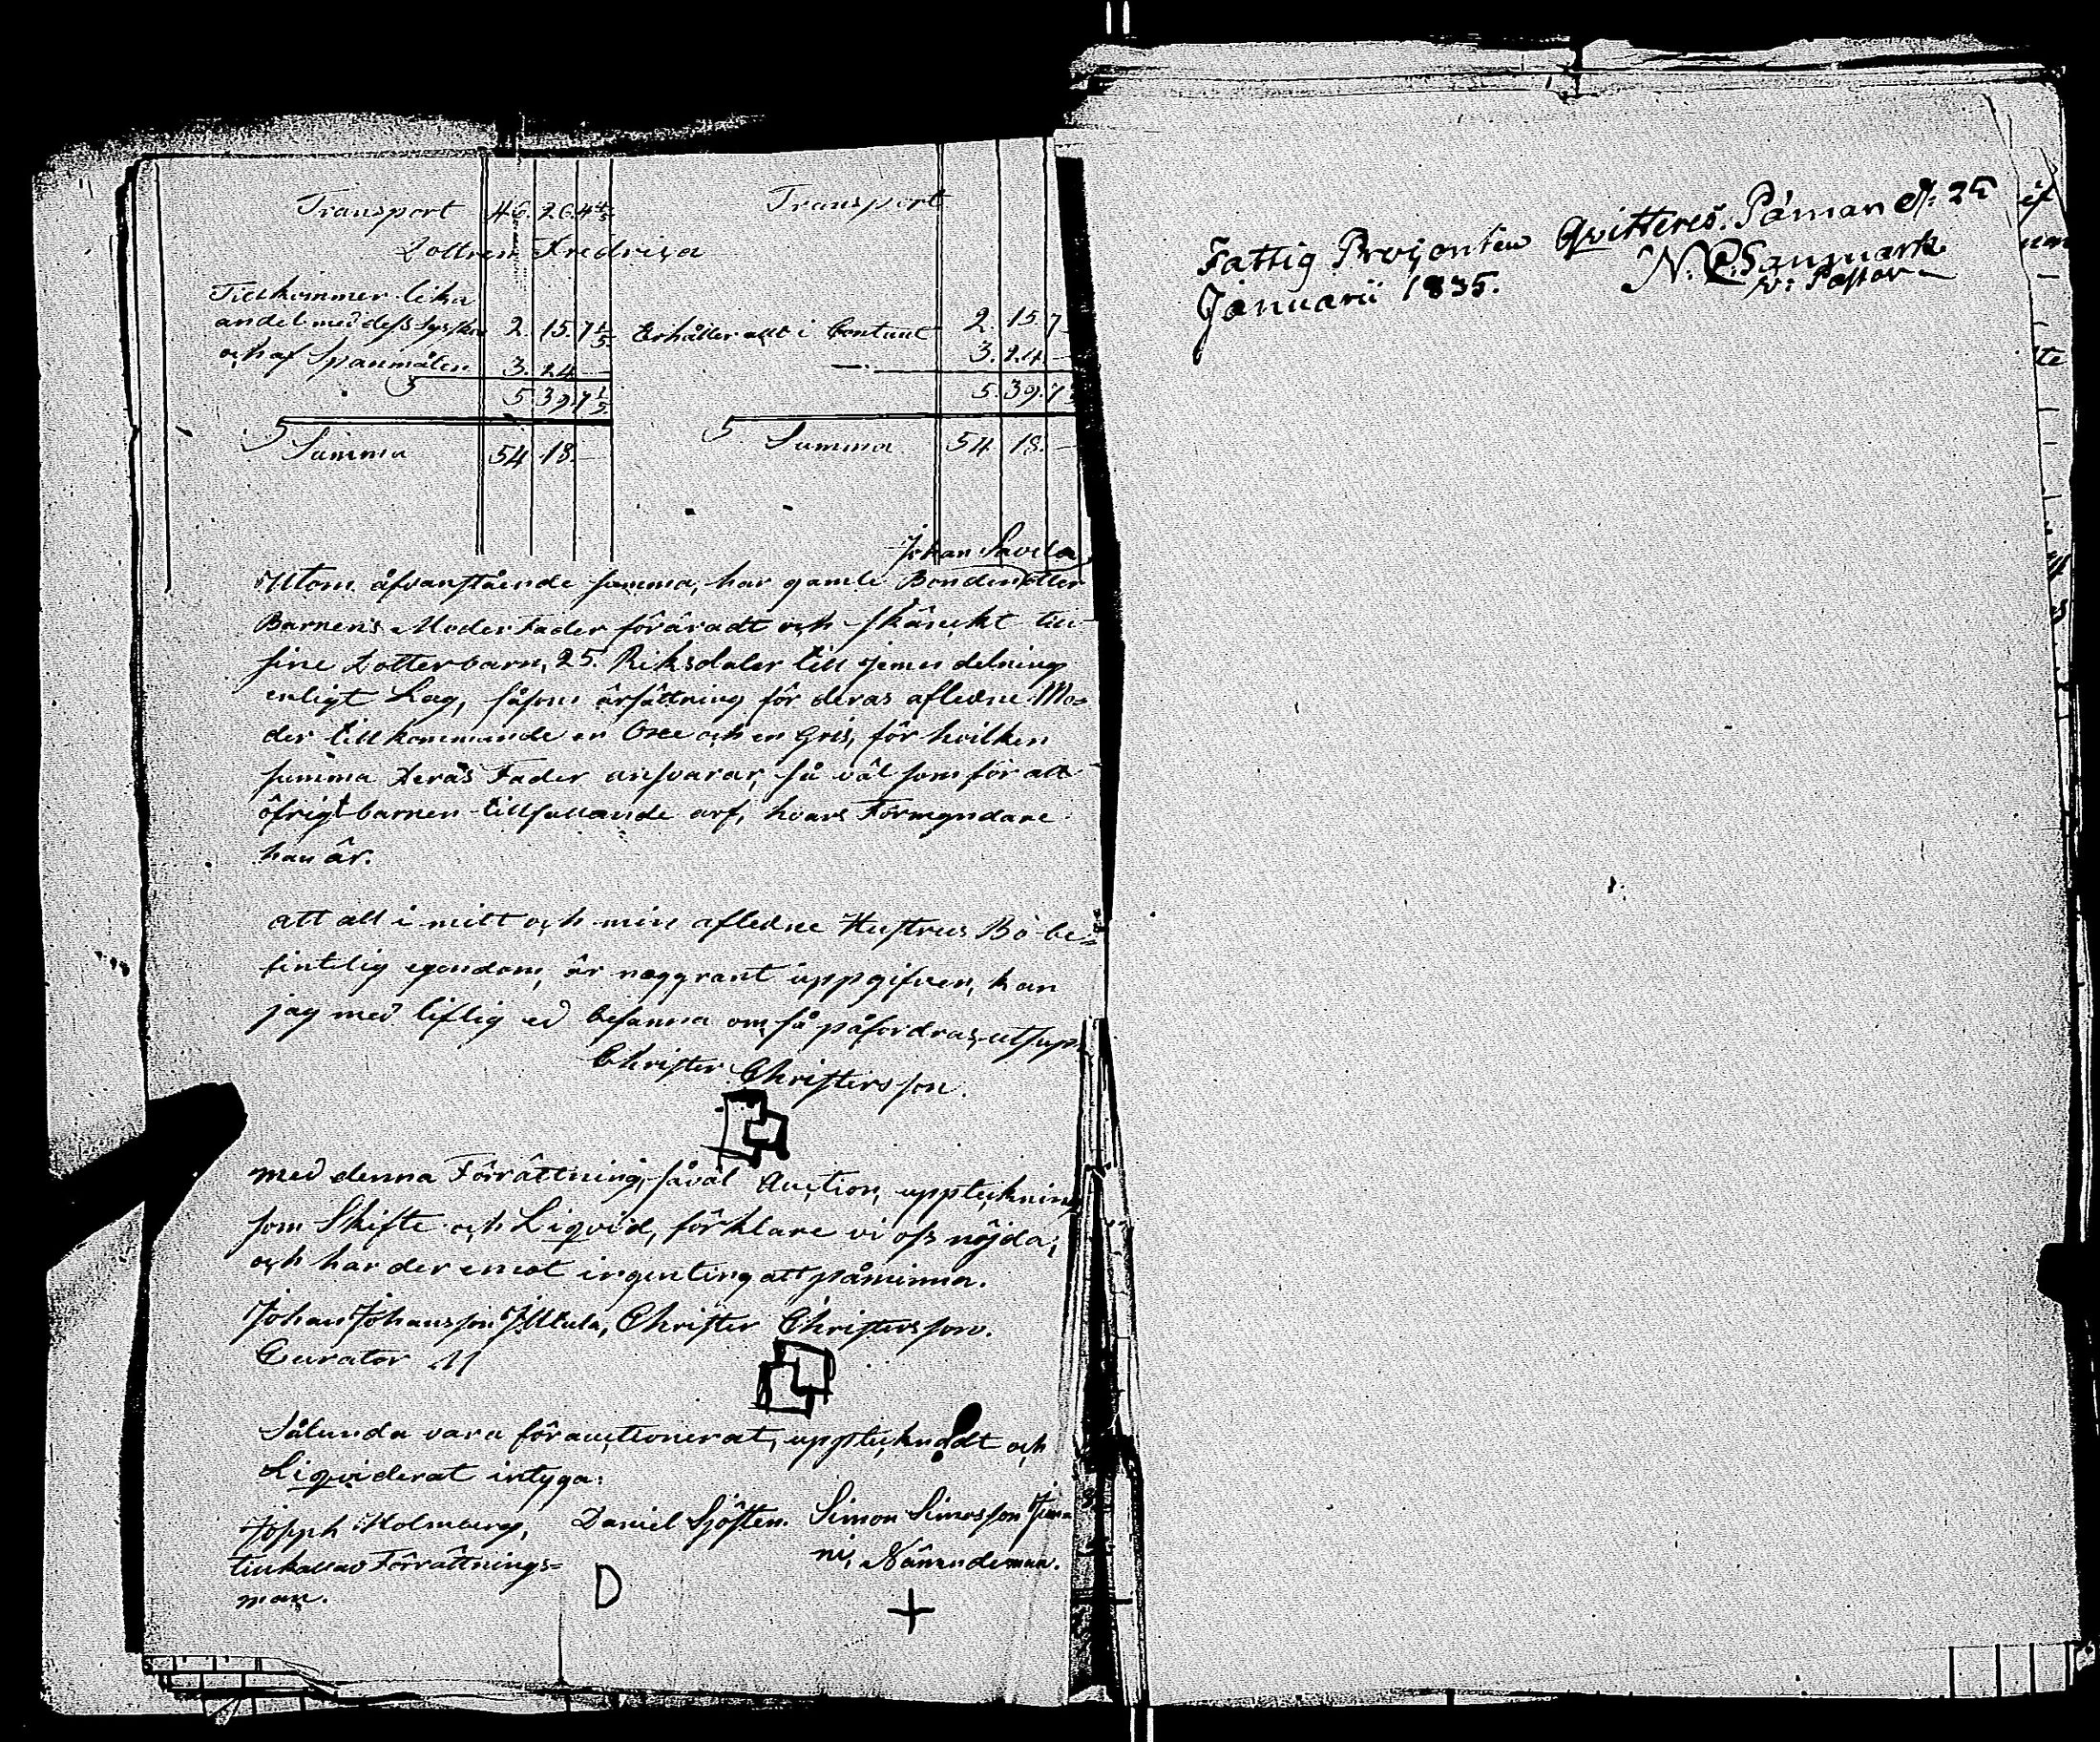 Transport 46. 26. 4 4/5 Transport
Dottren Fredrica
Tillkommer lika
andel med dess Syskon 2. 15. 7 1/5 Erhåller allt i Contant 2. 15. 7
och af Spanmålen 3. 24. — 3. 24. —
5. 39. 7 1/5 5. 39. 7
Summa 54. 18. — Summa 54. 18. —
Johan Savila
Utom åfvanstående summa, har gamle Bonden eller
Barnens Moder Fader föräradt och skänckt till
sine Dotterbarn, 25. Riksdaler till jemn delning
enligt Lag, såsom ärsättning för deras afledne Mo=
der tillkommande en Oxe och en Gris, för hvilken
summa deras Fader ansvarar, så väl som för allt
öfrigt barnen tillfallande arf, hvars Förmyndare
han är.
att all i mitt och min afledne Hustrus Bo be=
fintelig egendom, är noggrant uppgifven, kan
jag med liflig ed besanna om så påfordras, utsupr
Christer Christersson.
med denna Förrättning, såväl Auction, uppteckning
som Skifte och Liqvid, förklare vi oss nöjda,
och har deremot ingenting att påminna.
Johan Johansson Christer Christersson.
Curator
Sålunda vara förauctionerat, upptecknadt och
Liqviderat intyga:
Joseph Holmberg, Daniel Sjösten. Simon Simosson
tillkallad Förrättnings= Nämndeman.
man. D +
Fattig Procenten Qvitteres. Påmark d. 25
Januarii 1835. N. C. Sanmark
V: Pastor